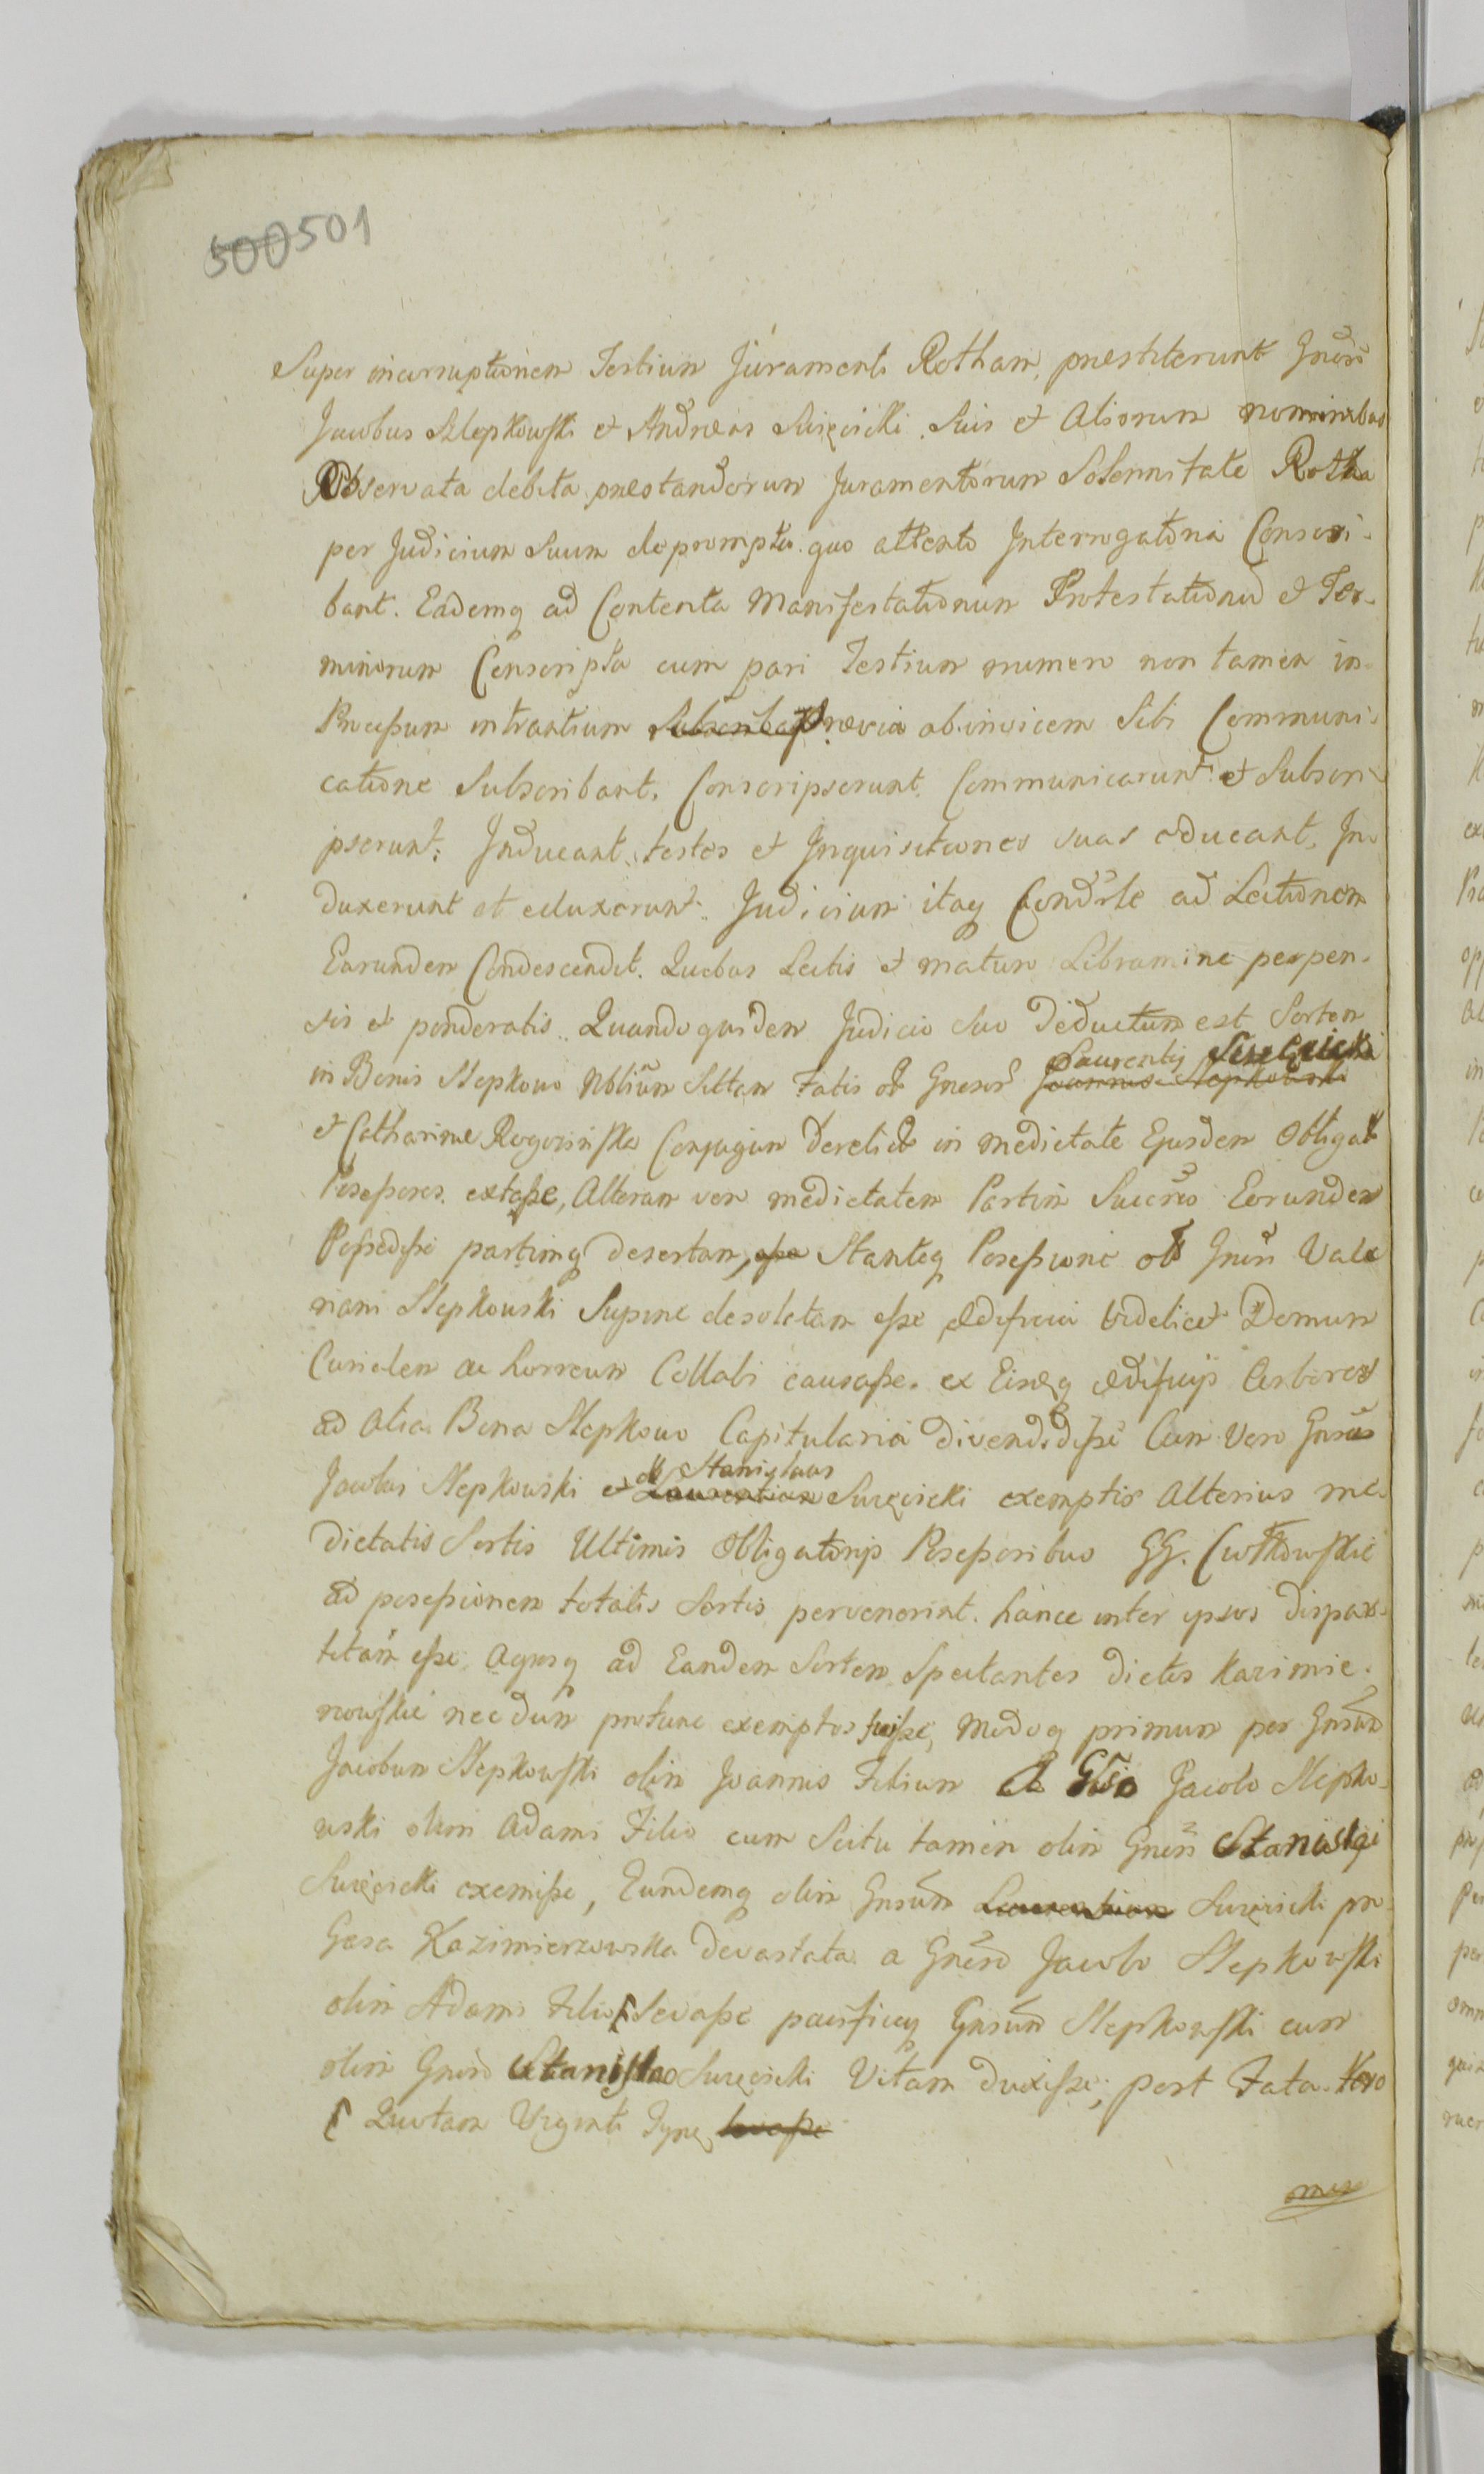 500 501
Super incorruptionem Testium Juramenti Rotham, præstiterunt Gnẽsi
Jacobus Slepkowski et Andreas Swięcicki. Suis et Aliorum nominibus
Observata debita præstandorum Juramentorum Solennitate Rotha
per Judicium Suum deprompta. quo attento Interrogatoria Conscri-
bant. Eademq ad Contenta Manifestationum Protestationũ et Ter-
minorum Conscripta cum pari Testium numero non tamen in
Processum intrantium Subscribant prævia ab invicem Sibi Communi-
catione Subscribant. Conscripserunt. Communicarunt et Subscri-
pserunt. Inducant testes et Inquisitiones suas educant. In-
duxerunt et eduxerunt. Judicium itaq Condesle ad Lectionem
Earundem Condescendit. Quibus Lectis et maturo Libramine perpen-
sis et ponderatis. Quandoquidem Judicio Suo Deductum est Sortem
Laurentij Swięcicki
in Bonis Slepkowo Nobilium Sittam Fatis olim Gnesor Joannis Slepkowski
et Catharinæ Rogozinska Conjugum Derelict in medietate Ejusdem Obligat
Possessores extasse, Alteram vero medietatem Partim Succres Eorundem
Possedisse partimq desertam, esse Stanteq Possessione olim Gnesi Vale
riani Slepkowski Supine desoletam esse ædificia videlicet Domum
Curialem ac horreum Collabi causasse. ex Eisq ædificijs Arbores
ad Alia Bona Slepkowo Capitularia divendidisse Cum Vero Gnsus
olim Stanislaus
Jacobus Slepkowski et Laurentium Swięcicki exemptis Alterius me-
dietatis Sortis Ultimis Obligatorijs Possessoribus GG. Cwilkowskie
ad possessionem totalis Sortis pervenerint. hance inter ipsos dispar-
titam esse. Agrosq ad Eandem Sortem Spectantes dictos Kazimie-
rowskie necdum protunc exemptos fuisse, Modoq primum per Gnsum
Jacobum Slepkowski olim Joannis Filium A Gnso Jacobo Slepko-
wski olim Adami Filio cum Scitu tamen olim Gnesi Stanislai
Swięcicki exemisse, Eundemq olim Gnsum Laurentium Swięcicki pro
Gesa Kazimierzowska Devastata a Gneso Jacobo Slepkowski
olim Adami Filio Levasse pacificeq Gnsum Slepkowski cum
olim Gneso Stanislao Swięcicki Vitam duxisse; post Fata Vero
Quotam Viginti Tynq levasse